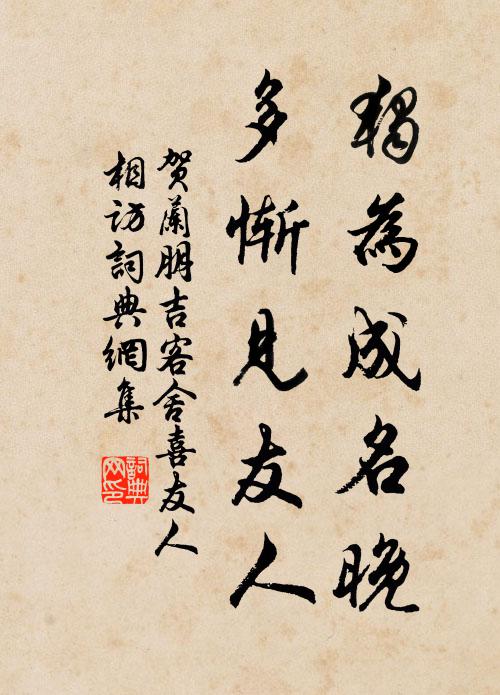 獨為成名晚
多慚見友人
賀蘭朋吉客舍喜友人
相訪詞典網集
詞典
网印